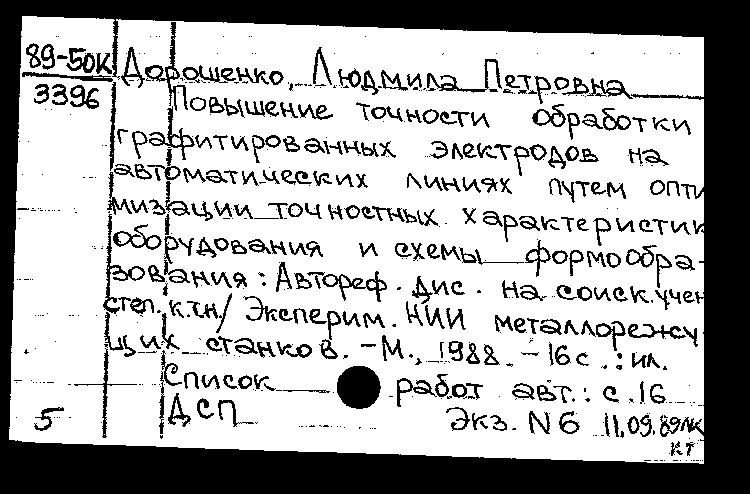 89-50К Дорошенко, Людмила Петровна
3396 Повышение точности обработки
графитированных электродов на
автоматических линиях путем опти
мизации точностных характеристик
оборудования и схемы формообра-
зования: Автореф. дис. на соиск. учен
степ. к.т.н/ Эксперим. НИИ металлорежу
щих станков. - М., 1988. - 16 с.: ил.
Список работ авт.: с. 16
5 ДСП Экз. N 6 11.09.89
КТ